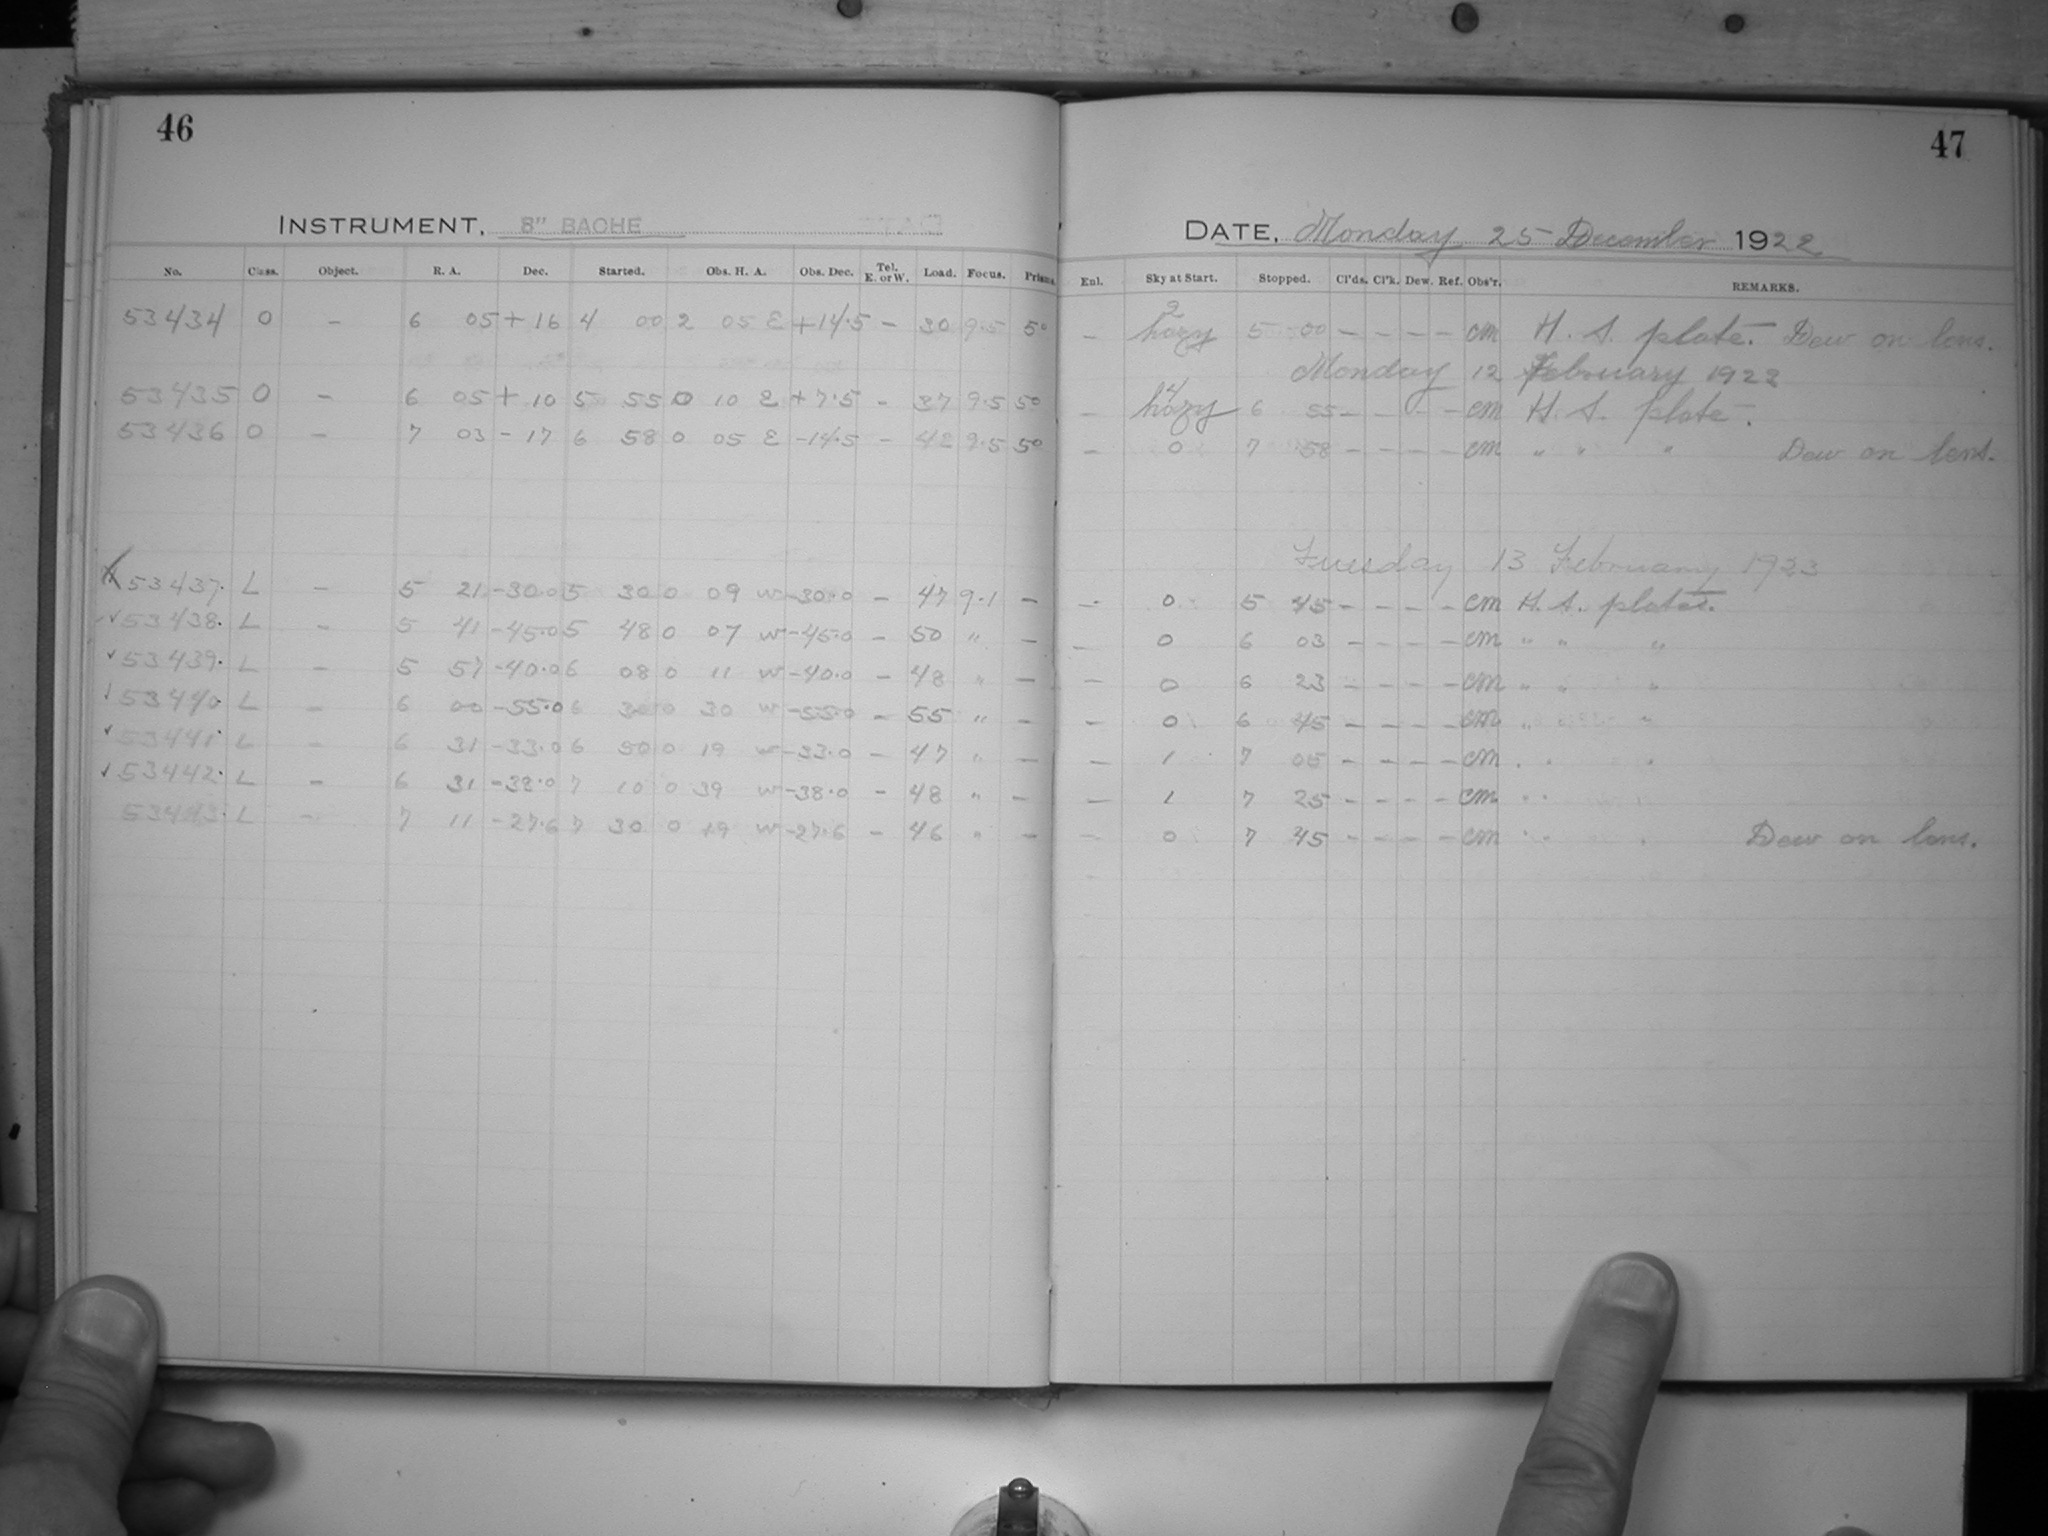 46
47
INSTRUMENT, 8" BACHE
DATE, Monday 25 December 1922
No. Class. Object. R. A. Dec. Started. Obs. H. A. Obs. Dec. Tel. E. or W. Load. Focus. Prism. Enl. Sky at Start. Stopped. Cl'ds. Cl'k. Dew. Ref. Obs'r. REMARKS.
53434 O – 6 05 + 16 4 00 2 05 E +14.5 – 30 9.5 5° – 2 hazy 5 00 – – – – cm H. S. plate. Dew on lens.
Monday 12 February 1922
53435 O – 6 05 + 10 5 55 0 10 E +7.5 – 37 9.5 5° – 4 hazy 6 55 – – – – cm H. S. plate.
53436 O – 7 03 – 17 6 58 0 05 E –14.5 – 42 9.5 5° – 0 7 58 – – – – cm " " " Dew on lens.
Tuesday 13 February 1923
53437. L – 5 21 –30.0 5 30 0 09 W –30.0 – 47 9.1 – – 0 5 45 – – – – cm H. S. plates.
✓53438. L – 5 41 –45.0 5 48 0 07 W –45.0 – 50 " – – 0 6 03 – – – – cm " " "
✓53439. L – 5 57 –40.0 6 08 0 11 W –40.0 – 48 " – – 0 6 23 – – – – cm " " "
✓53440. L – 6 00 –55.0 6 30 0 30 W –55.0 – 55 " – – 0 6 45 – – – – cm " " "
✓53441. L – 6 31 –33.0 6 50 0 19 W –33.0 – 47 " – – 1 7 05 – – – – cm " " "
✓53442. L – 6 31 –38.0 7 10 0 39 W –38.0 – 48 " – – 1 7 25 – – – – cm " " "
53443. L – 7 11 –27.6 7 30 0 19 W –27.6 – 46 " – – 0 7 45 – – – – cm " " " Dew on lens.